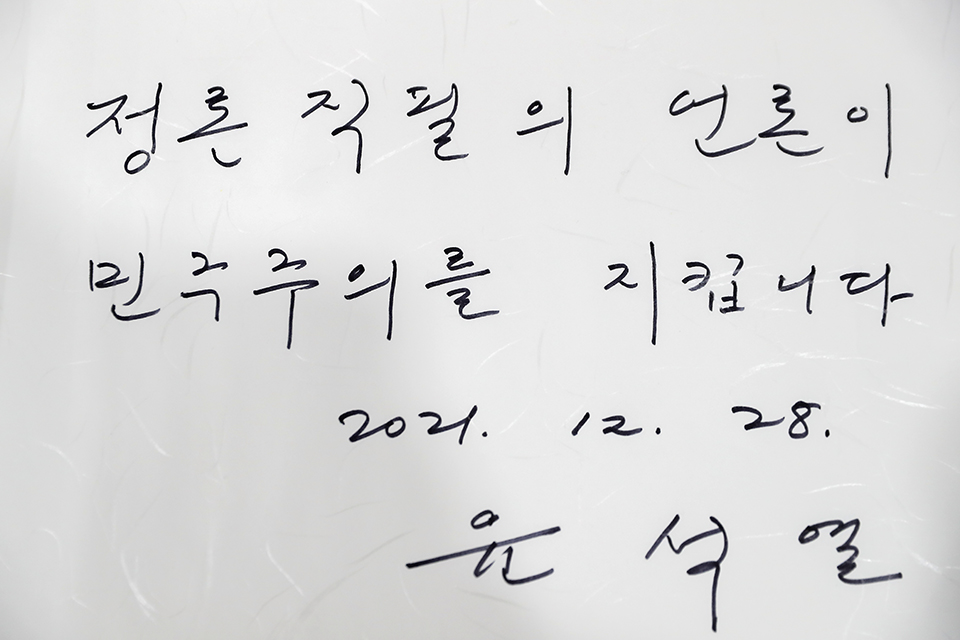 정론직필의 언론이
민주주의를 지킵니다
2021. 12. 28.
윤석열